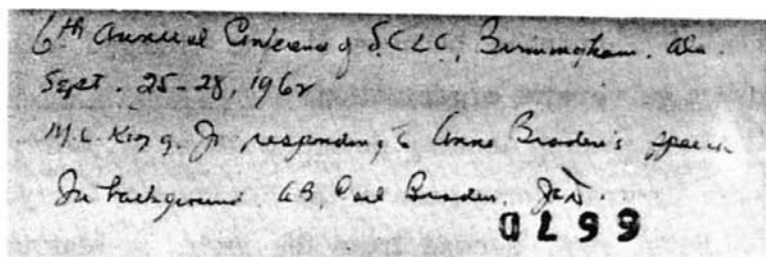 6th Annual Conference of SCLC, Birmingham. Ala.
Sept. 25-28, 1962
M.L. King, Jr responding to Anne Braden's speech
In background AB, Carl Braden, JAD.
0799